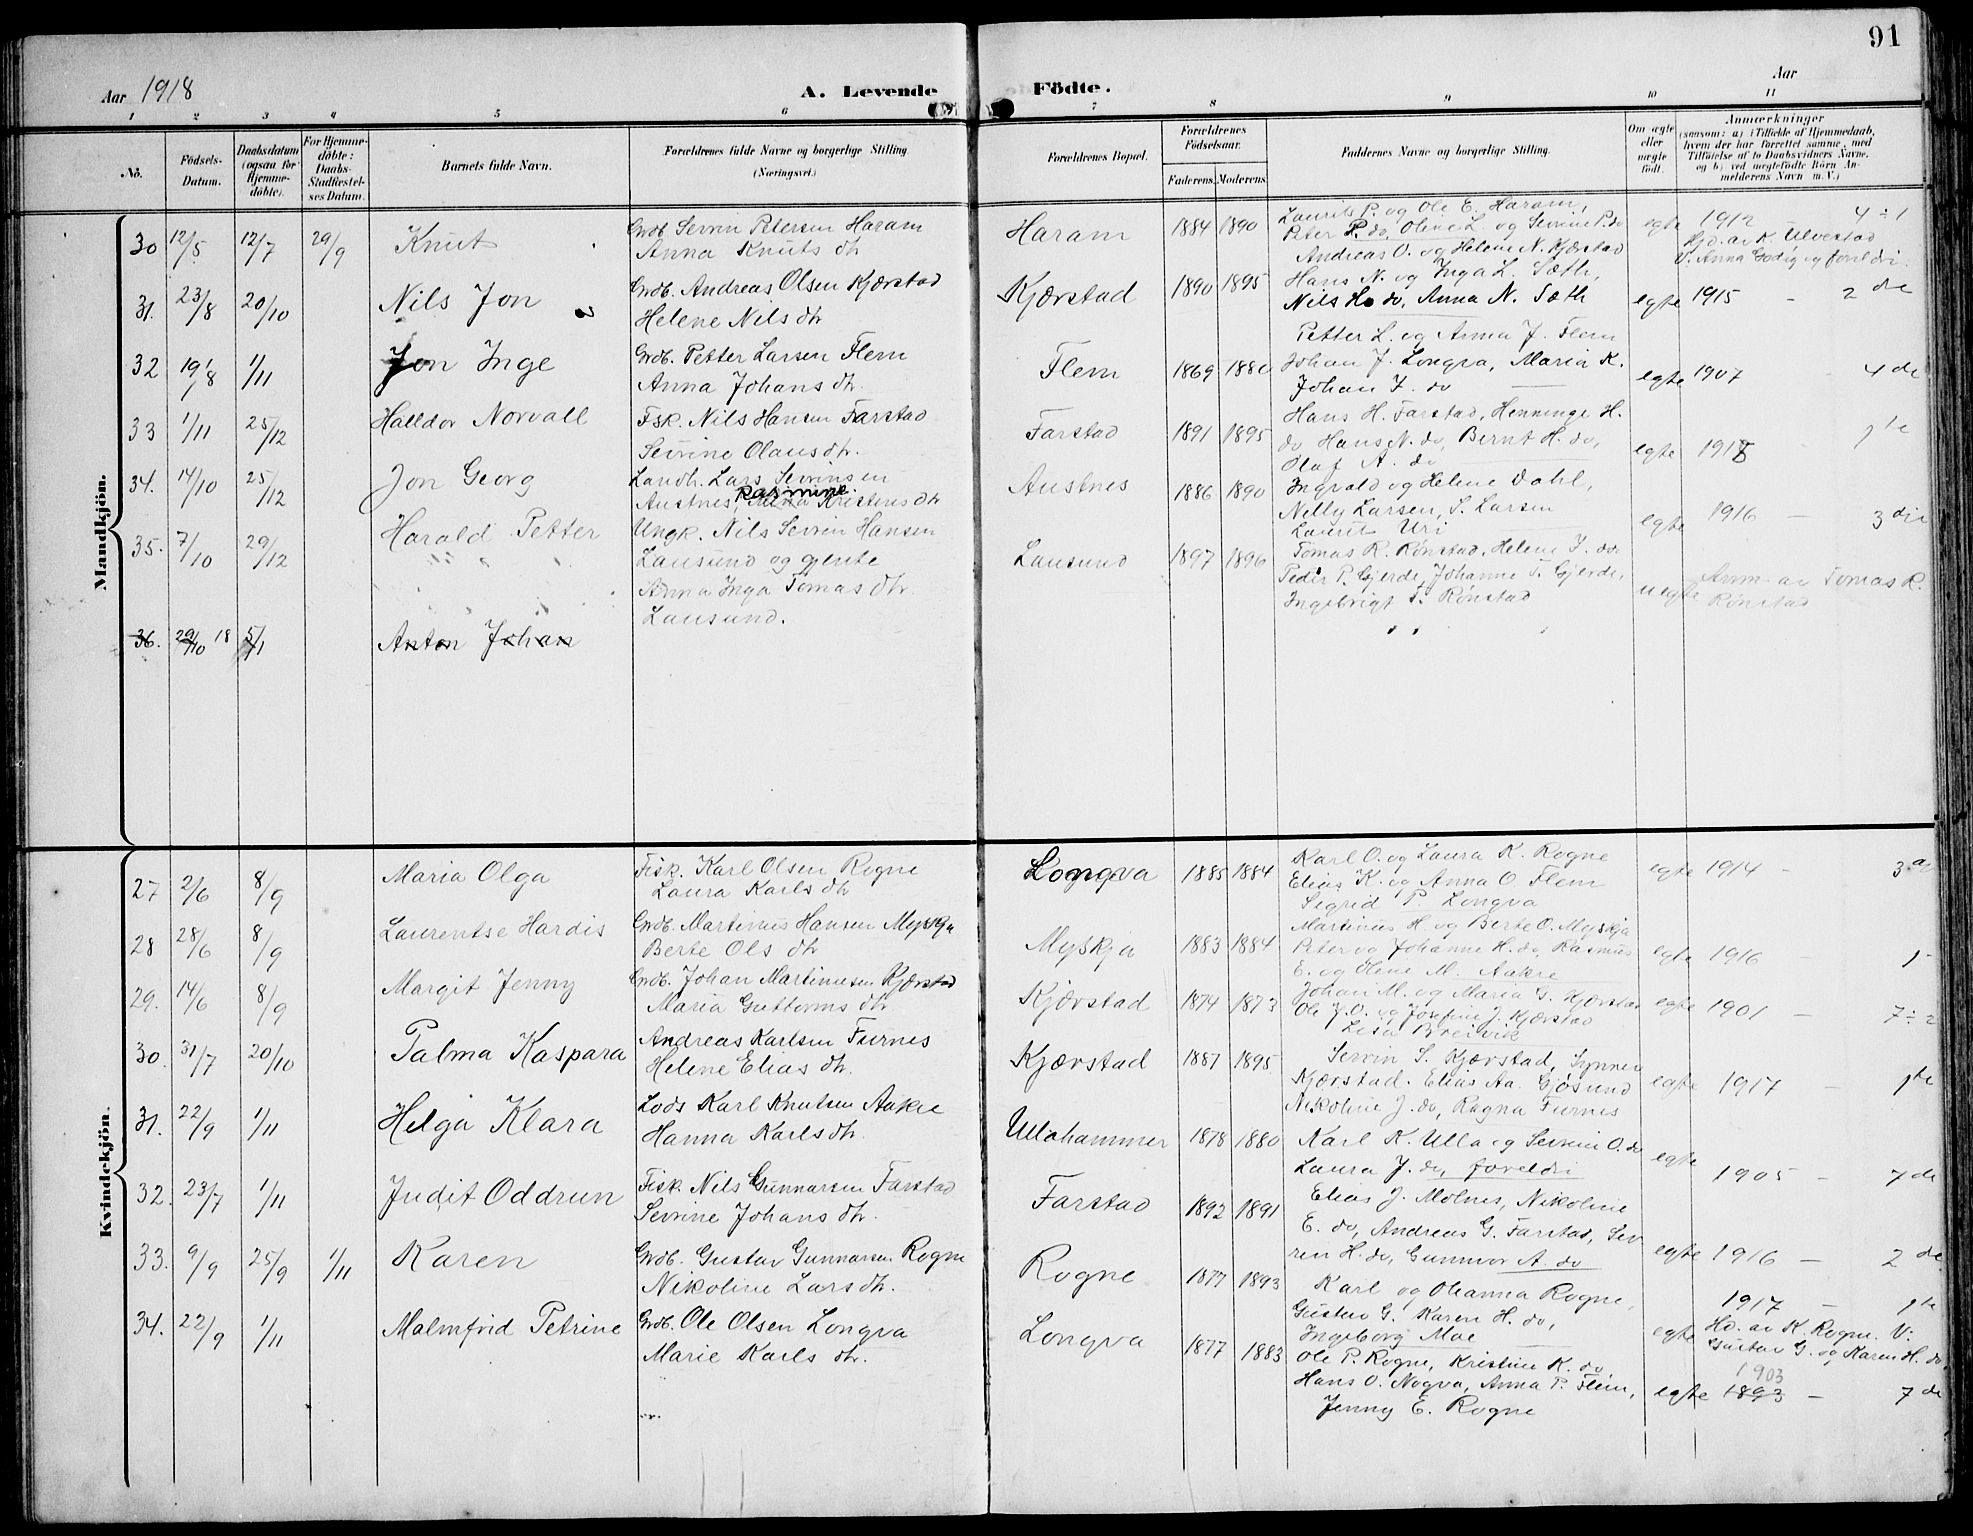 91
Aar 1918
A. Levende Födte.
Aar
1 2 3 4 5 6 7 8 9 10 11
No.
Födsels-
Datum.
Daabsdatum
(ogsaa for
Hjemme-
döbte).
For Hjemme-
döbte:
Daabs-
Stadfæstel-
ses Datum.
Barnets fulde Navn.
Forældrenes fulde Navne og borgerlige Stilling
(Næringsvei.)
Forældrenes Bopæl.
Forældrenes
Födselsaar.
Faderens. Moderens.
Faddernes Navne og borgerlige Stilling.
Om ægte
eller
uægte
født.
Anmærkninger
(saasom: a) i Tilfælde af Hjemmedaab,
hvem der har forrettet samme, med
Tilföielse af to Daabsvidners Navne,
og b) ved uægtefödte Börn An-
melderens Navn m. V.)
Mandkjön.
30 12/5 12/7 29/9 Knut
Grdb. Sevrin Petersen Haram
Anna Knuts dtr
Haram 1884 1890
Laurits P. og Ole E. Haram,
Peter P. do, Oline L. og Sevrine P. do
Andreas O. og Helene N. Kjærstad
egte 1912 4 ÷ 1
Hjd. av K. Ulvestad
V: Anna Godig og foreldri.
31. 23/8 20/10 Nils Jon
Grdb. Andreas Olsen Kjærstad
Helene Nils dtr
Kjærstad 1890 1895
Hans N. og Inga L. Sæth,
Nils H. do, Anna N. Sæth
egte 1915 - 2 de
32 19/8 1/11 Jon Inge
Grdb. Petter Larsen Flem
Anna Johans dtr.
Flem 1869 1880
Petter L. og Anna J. Flem
Johan J. Longva, Maria K.
Johan J. do
egte 1907 - 4 de
33 1/11 25/12 Halldor Norvall
Fsk. Nils Hansen Farstad
Sevrine Olaus dtr.
Farstad 1891 1895
Hans H. Farstad, Henninge H.
do Hans N. do, Bernt H. do,
Olaf A. do
egte 1918 - 1 te
34. 14/10 25/12 Jon Georg
Landh. Lars Sevrinsen
Austnes, Rasmine Kristens dtr
Austnes 1886 1890
Ingvald og Helene Dahl,
Nelly Larsen, S. Larsen
Laurit Uri
egte 1916 - 3 die
35. 7/10 29/12 Harald Petter
Ungk. Nils Sevrin Hansen
Lausund og gjente
Anna Inga Tomas dtr.
Lausund.
Lausund 1897 1896
Tomas R. Rønstad, Helene J. do
Peder P. Gjerde, Johanne T. Gjerde,
Ingebrigt T. Rønstad
uegte Anm av Tomas R.
Rønstad
36. 29/10 18 5/1 Anton Johan
Kvindekjön.
27 2/6 8/9 Maria Olga
Fisk. Karl Olsen Rogne
Laura Karls dtr
Longva 1885 1884
Karl O. og Laura K. Rogne
Elias K. og Anna O. Flem
Sigrid P. Longva
egte 1914 - 3
28 28/6 8/9 Laurentse Hardis
Grdb. Martinus Hansen Myskja
Berte Ols dtr
Myskja 1883 1884
Martinus H. og Berte O. Myskja
Peter og Johanne H. do, Rasmus
E. og Olene M. Aakre
egte 1916 - 1
29. 14/6 8/9 Margit Jenny
Grdb. Johan Martinusen Kjærstad
Maria Guttorms dtr
Kjærstad 1874 1873
Johan M. og Maria G. Kjærstad
Ole J. O. og Josefine J. Kjærstad
Lisa Breivik
egte 1901 - 7 ÷ 2
30. 31/7 20/10 Palma Kaspara
Andreas Karlsen Furnes
Helene Elias dtr.
Kjærstad 1887 1895
Sevrin S. Kjærstad, Synnev
Kjærstad. Elias Aa. Gjøsund
Nikoline J. do, Ragna Furnes
egte 1917 - 1 te
31. 22/9 1/11 Helga Klara
Lods Karl Knutsen Aakre
Hanna Karls dtr.
Ullahammer 1878 1880
Karl K. Ulla og Sevrine O. do
Laura J. do, foreldri
egte 1905 - 7 de
32. 23/7 1/11 Judit Oddrun
Fisk. Nils Gunnarsen Farstad
Sevrine Johans dtr.
Farstad 1892 1891
Elias J. Molnes, Nikoline
E. do, Andreas G. Farstad, Sev
rin H. do, Gunnvor A. do
egte 1916 - 2 de
33. 9/9 25/9 1/11 Karen
Grdb. Gustav Gunnarsen Rogne
Nikoline Lars dtr.
Rogne 1877 1893
Karl og Ohanna Rogne,
Gustav G. Karen H. do,
Ingeborg Moe
egte 1917 - 1 te
Hd. av K. Rogne. V:
Gustav G. og Karen H. do
34. 22/9 1/11 Malmfrid Petrine
Grdb. Ole Olsen Longva
Marie Karls dtr.
Longva 1877 1883
Ole P. Rogne, Kristine K. do
Hans O. Nogva, Anna P. Flem,
Jenny E. Rogne
egte 1893 1903 - 7 de